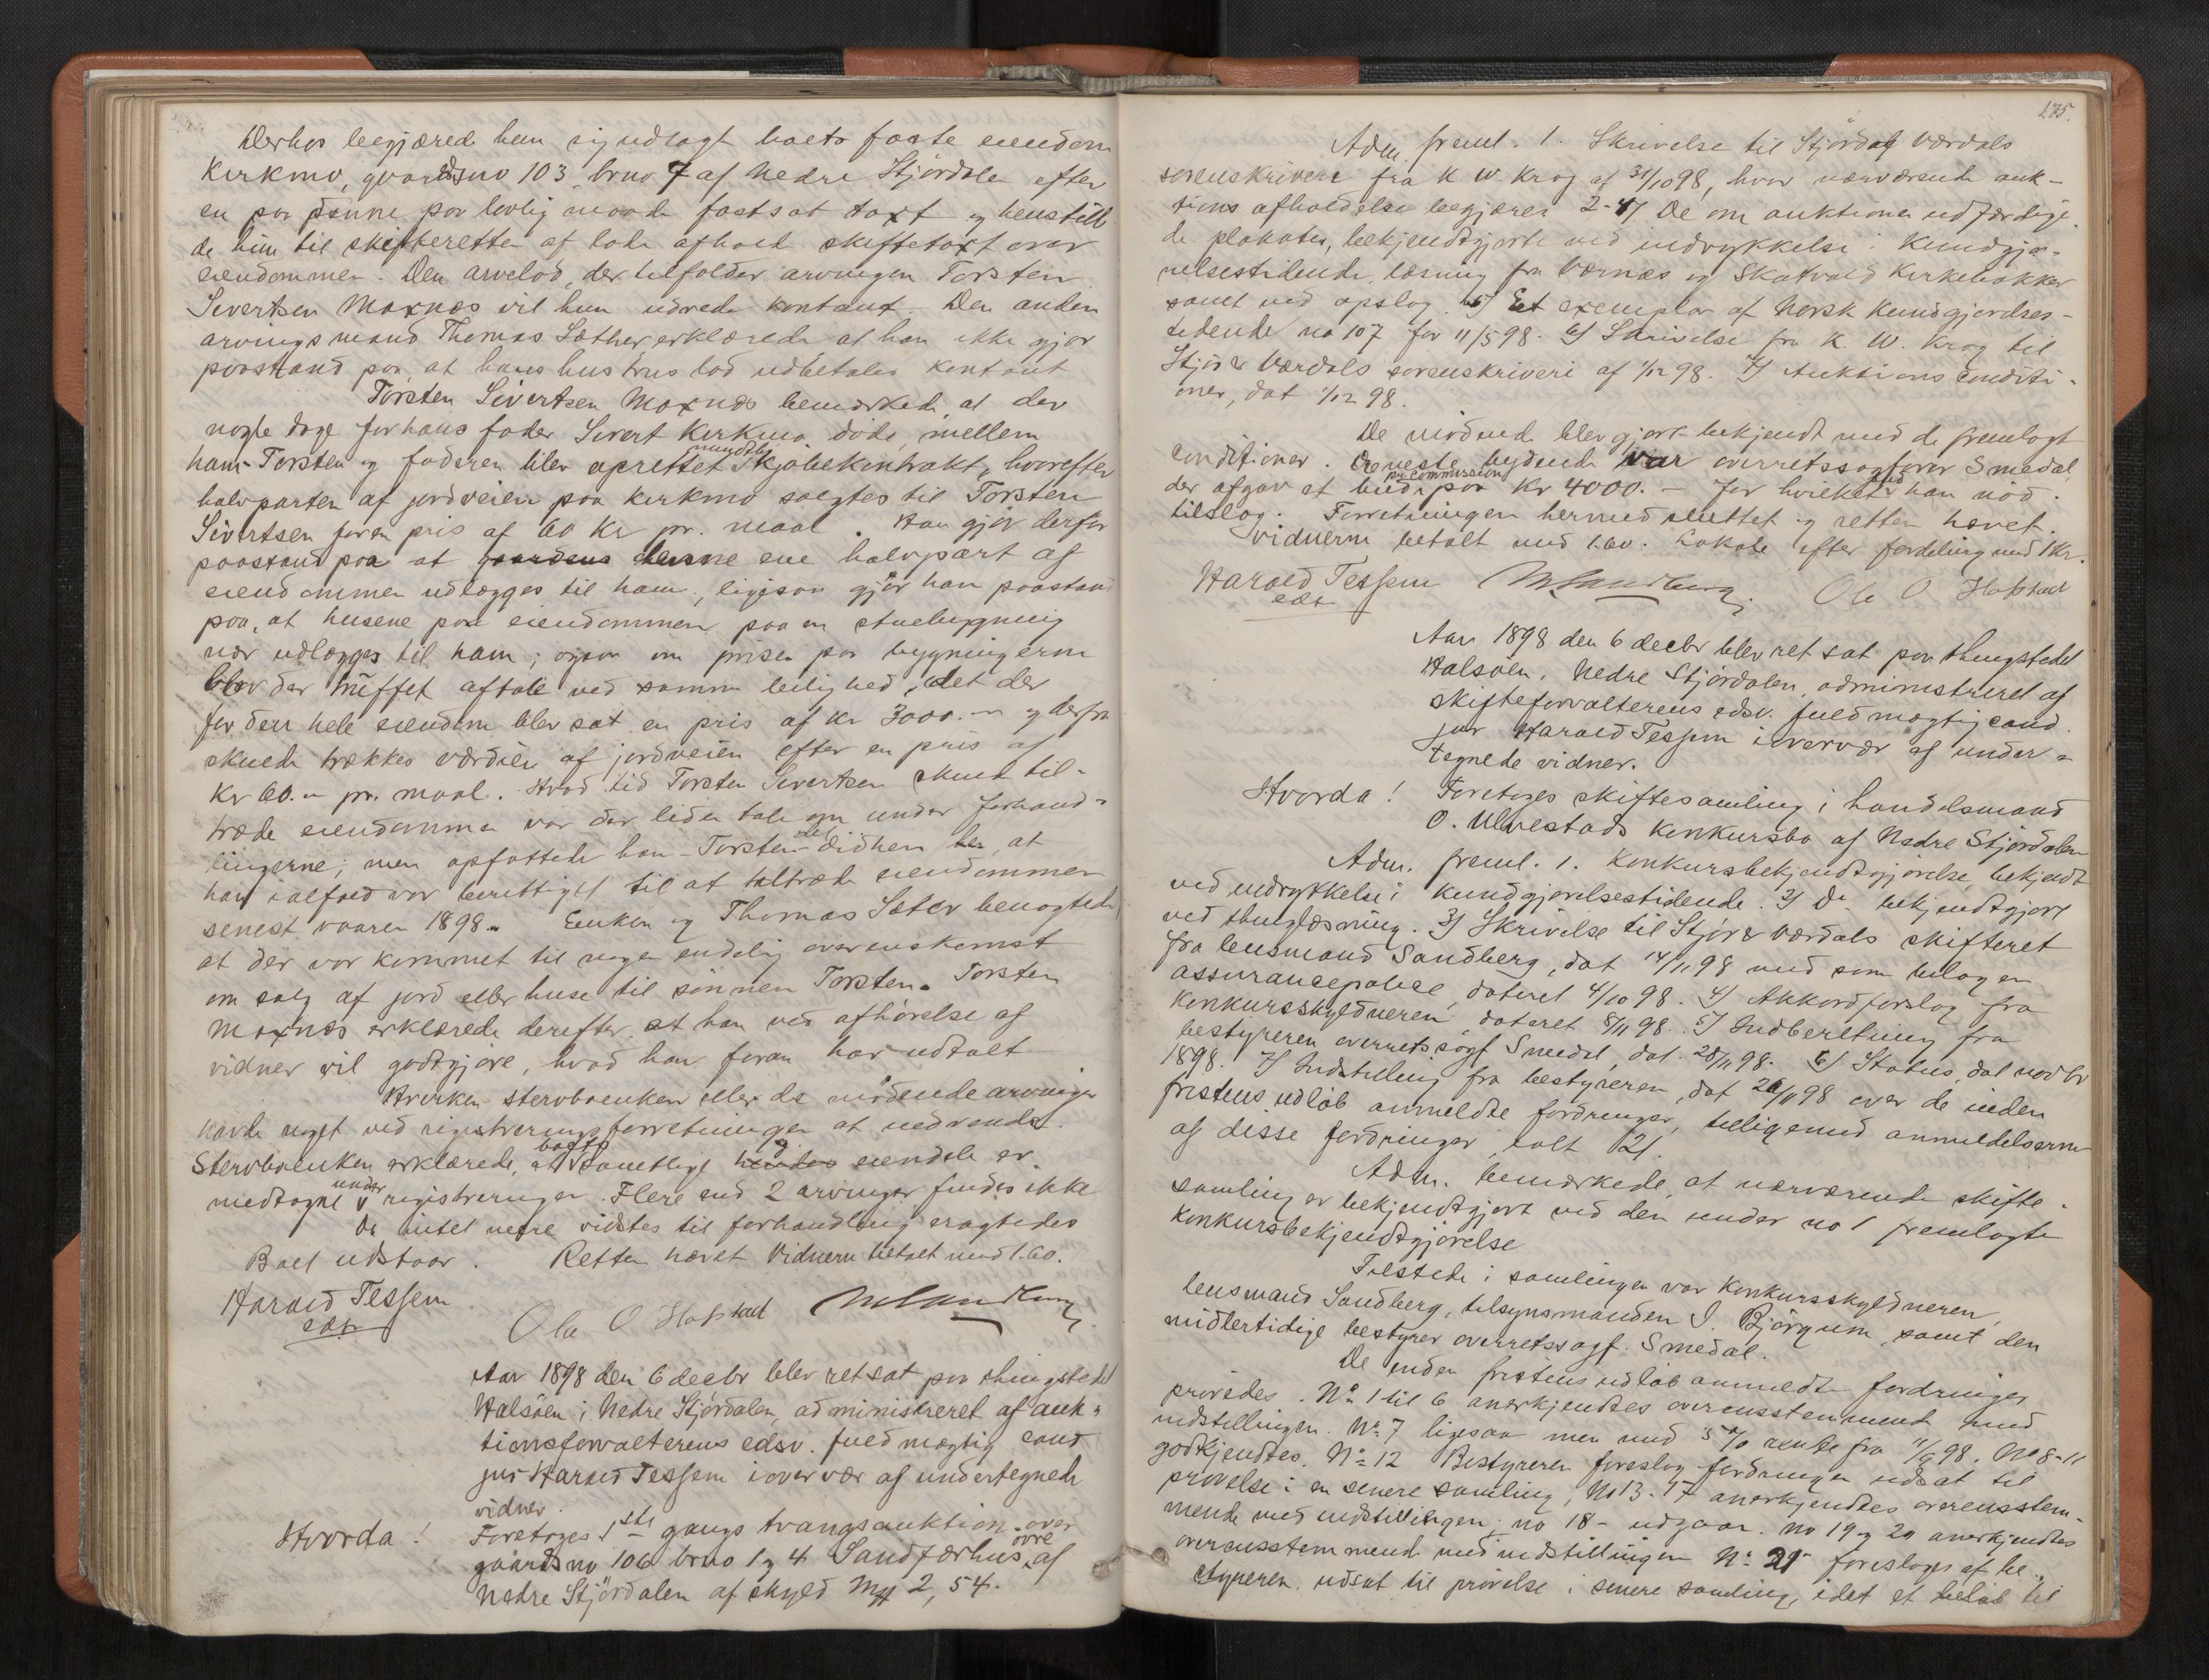 Derhos begjærede hun sig udlagt boets faste eiendom
Kirkmo, gaardsno 103, brno 7 af Nedre Stjørdalen efter
en paa denne paa lovlig maade fastsat taxt og henstill
de hun til skifteretten at lade afholde skiftetaxt over
eiendommen. Den arvelod, der tilfalder arvingen Torsten
Sivertsen Moxnes vil hun udrede kontant. Den anden
arvings mand Thomas Sæther erklærede at han ikke gjør
paastand paa, at hans hustrus lod udbetales kontant
Torsten Sivertsen Moxnæs bemærkede, at der
nogle dage før hans fader Sivert Kirkmo døde, mellem
ham - Torsten og faderen blev oprettet mundtlig kjøbekontrakt, hvorefter
halvparten af jordveien paa Kirkmo solgtes til Torsten
Sivertsen for en pris af 60 Kr pr. maal. Han gjør derfor
paastand paa at gaardens denne ene halvpart af
eiendommen udlægges til ham, ligesom gjør han paastand
paa, at husene paa eiendommen paa en stuebygning
nær udlægges til ham; ogsaa om prisen paa bygningerne
blev der truffet aftale ved samme leilighed, idet der
for den hele eiendom blev sat en pris af Kr 3000.- og derfra
skulde trækkes værdien af jordveien efter en pris af
Kr 60.- pr. maal. Hvad tid Torsten Sivertsen skulde til-
træde eiendommen var der liden tale om under forhand-
lingerne; men opfattede han - Torsten - det didhen, at
han ialfald var berettiget til at tiltræde eiendommen
senest vaaren 1898. Enken og Thomas Sæter benegtede
at der var kommet til nogen endelig overenskomst
om salg af jord eller huse til sønnen Torsten. Torsten
Moxnæs erklærede derefter, at han ved afhørelse af
vidner vil godtgjøre, hvad han foran har udtalt
Hverken stervboenken eller de mødende arvinger
havde noget ved registreringsforretningen at indvende.
Stervboenken erklærede, at boets samtlige hendes eiendele er
medtagne under registreringen. Flere end 2 arvinger findes ikke
Da intet mere vidstes til forhandling eragtedes
Boet udstaar. Retten hævet Vidnerne betalt med 1.60.
Harald Tessem
edsv
Ola O Hofstad MSandberg
Aar 1898 den 6 decbr blev ret sat paa thingstedet
Halsøen i Nedre Stjørdalen, administreret af auk-
tionsforvalterens edsv. fuldmægtig cand
jur Harald Tessem i overvær af undertegnede
vidner.
Hvorda! Foretoges 1ste gangs tvangsauktion over
gaardsno 106 brno 1 og 4 Sandfærhus øvre af
Nedre Stjørdalen af skyld Mk 2,54.
175.
Adm. freml. 1. Skrivelse til Stjørdal Værdals
sorenskriveri fra K W. Krog af 31/10 98, hvor nærværende auk-
tions afholdelse begjæres 2-4) De om auktionen udfærdige
de plakater, bekjendtgjorte ved indrykkelse i Kundgjø-
relsestidende, læsning fra Værnæs og Skatvald Kirkebakker
samt ved opslag. 5) Et exemplar af Norsk Kundgjørelses-
tidende no 107 for 11/5 98. 6) Skrivelse fra K. W. Krog til
Stjør & Værdals sorenskriveri af 1/12 98. 7) Auktionsconditi-
oner, dat 1/12 98.
De mødende blev gjort bekjendt med de fremlagte
conditioner. Høieste bydende var overretssagfører Smedal,
der afgav et bud pr commission paa Kr 4000.- for hvilket bud han nød
tilslag. Forretningen hermed sluttet og retten hævet.
Vidnerne betalt med 1.60. Lokale efter fordeling med 1 Kr.
Harald Tessem MSandberg. Ola O Hofstad
edsv
Aar 1898 den 6 decbr blev ret sat paa thingstedet
Halsøen, Nedre Stjørdalen, administreret af
skifteforvalterens edsv. fuldmægtig cand.
jur Harald Tessem i overvær af under-
tegnede vidner.
Hvorda! Foretoges skiftesamling i handelsmand
O. Ulvestads konkursbo af Nedre Stjørdalen
Adm. freml. 1. Konkursbekjendtgjørelse, bekjendt
ved indrykkelse i kundgjørelsestidende. 2) Do bekjendtgjort
ved thinglæsning. 3) Skrivelse til Stjør & Værdals skifteret
fra lensmand Sandberg, dat 14/11 98 med som bilag en
assurancepolice, dateret 4/10 98. 4) Akkordforslag fra
konkursskyldneren, dateret 8/11 98. 5) Indberetning fra
bestyreren overretssagf Smedal, dat. 28/11 98. 6) Status, dat novbr
1898. 7) Indstilling fra bestyreren, dat 26/11 98 over de inden
fristens udløb anmeldte fordringer, tilligemed anmeldelserne
af disse fordringer, ialt 21.
Adm. bemærkede, at nærværende skifte-
samling er bekjendtgjort ved den under no 1 fremlagte
konkursbekjendtgjørelse
Tilstede i samlingen var konkursskyldneren,
lensmand Sandberg, tilsynsmanden I. Bjørgum, samt den
midlertidige bestyrer overretssagf. Smedal.
De inden fristens udløb anmeldte fordringer
prøvedes. No 1 til 6 anerkjendtes overensstemmende med
indstillingen. No 7 ligesaa men med 5% rente fra 11/11 98. No 8-11
godkjendtes. No 12 Bestyreren foreslog fordringen udsat til
prøvelse i en senere samling, no 13-17 anerkjendtes overensstem-
mende med indstillingen; no 18- udgaar. no 19 og 20 anerkjendtes
overensstemmende med indstillingen No 21 foresloges af be-
styreren udsat til prøvelse i senere samling, idet et beløb til